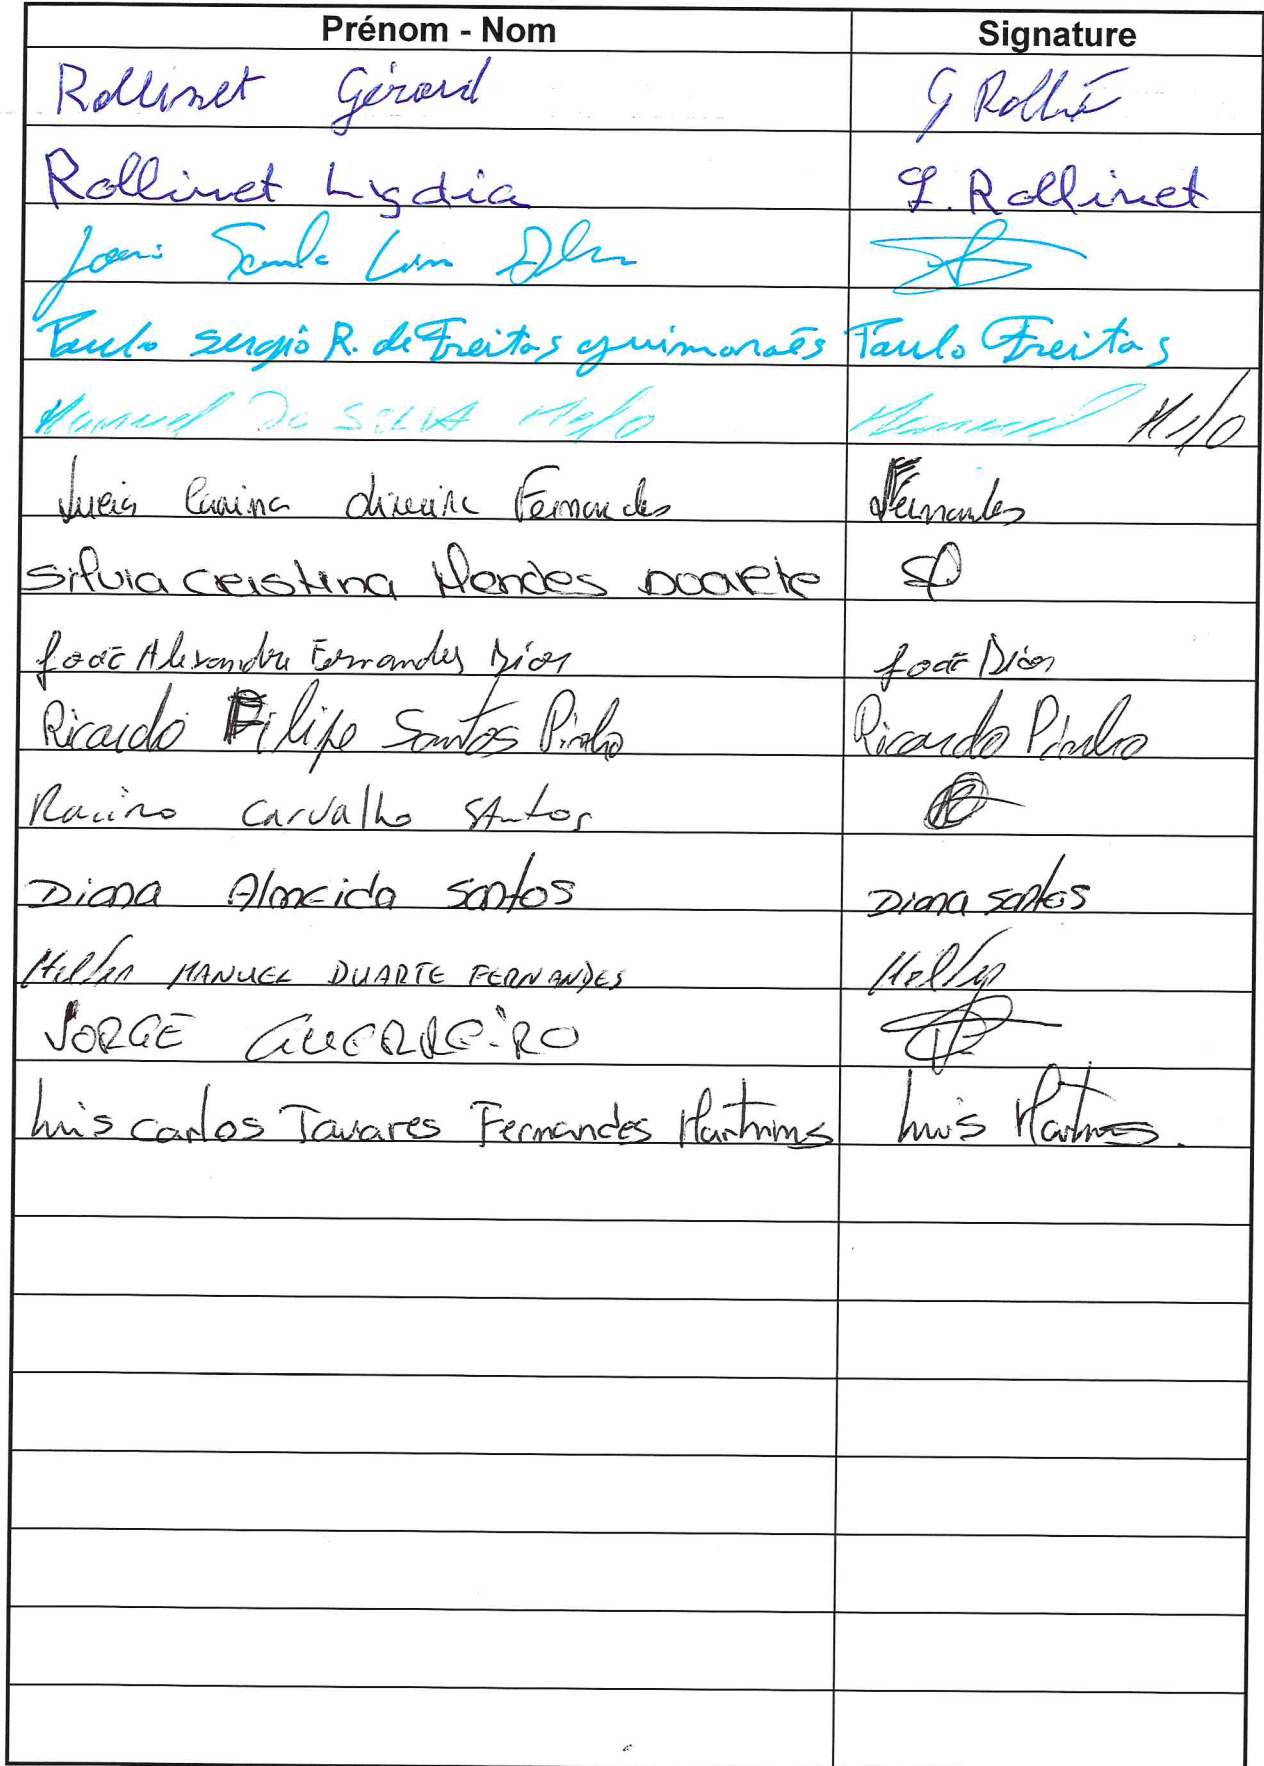 Prénom - Nom Signature
Rollinet Gérard G Rolli
Rollinet Lydia L. Rollinet
Paulo sergio R. de Freitas guimaraẽs Paulo Freitas
Manuel Da SILVA Melo Manuel Melo
Lucia Carina Fernandes Fernandes
Silvia Cristina Mendes Duarte
João Alexandre Fernandes Dias João Dias
Ricardo Filipe Santos Pinho Ricardo Pinho
Carvalho Santos
Diana Almeida Santos Diana Santos
MANUEL DUARTE FERNANDES
JORGE GUERREiRO
Luis Carlos Tavares Fernandes Martins Luis Martins.